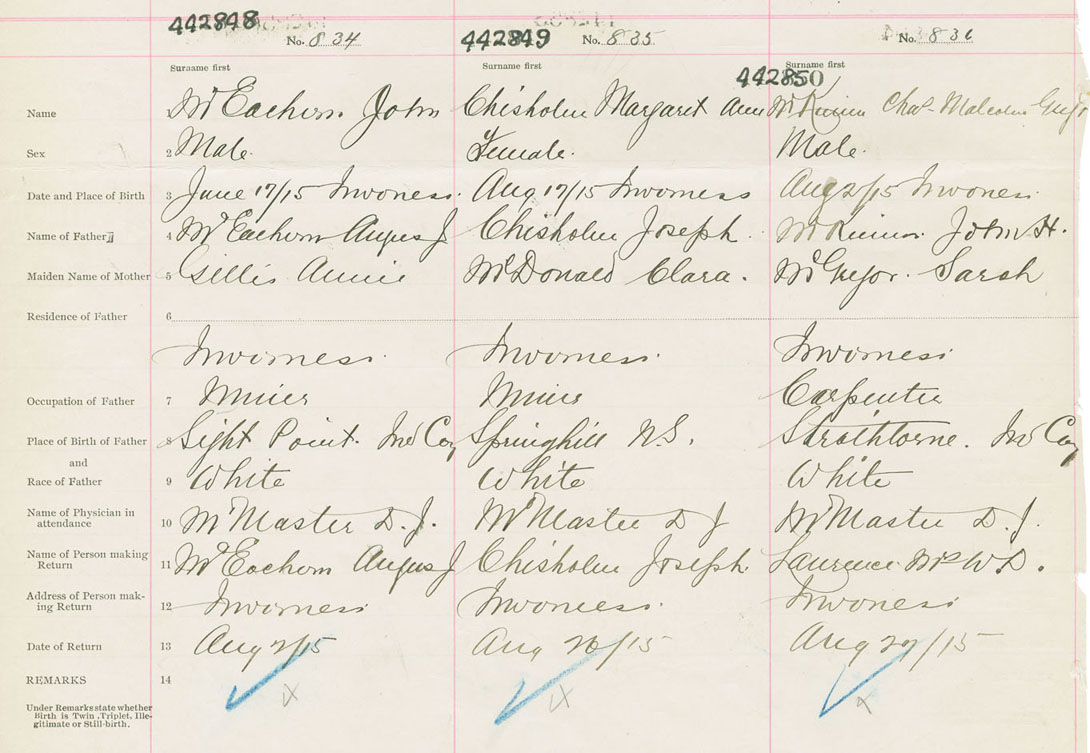 442848 No. 834 442849 No. 835 442850 No. 836
Surname first Surname first Surname first
Name 1 McEachern John Chisholm Margaret Ann McKinnon Chas. Malcolm
Sex 2 Male. Female. Male.
Date and Place of Birth 3 June 17/15 Inverness. Aug 17/15 Inverness Aug 2/15 Inverness
Name of Father 4 McEachern Angus J Chisholm Joseph. McKinnon John H.
Maiden Name of Mother 5 Gillis Annie McDonald Clara. McGregor. Sarah
Residence of Father 6
Inverness. Inverness. Inverness
Occupation of Father 7 Miner Miner Carpenter
Place of Birth of Father 8 Sight Point. Inv Coy Springhill N.S. Strathlorne. Inv Coy
and
Race of Father 9 White White White
Name of Physician in
attendance 10 McMaster D. J. McMaster D J McMaster D. J.
Name of Person making
Return 11 McEachern Angus J Chisholm Joseph. Laurence Mrs W.D.
Address of Person mak-
ing Return 12 Inverness Inverness. Inverness
Date of Return 13 Aug 2/15 Aug 20/15 Aug 27/15
REMARKS 14
Under Remarks state whether
Birth is Twin, Triplet, Ille-
gitimate or Still-birth.